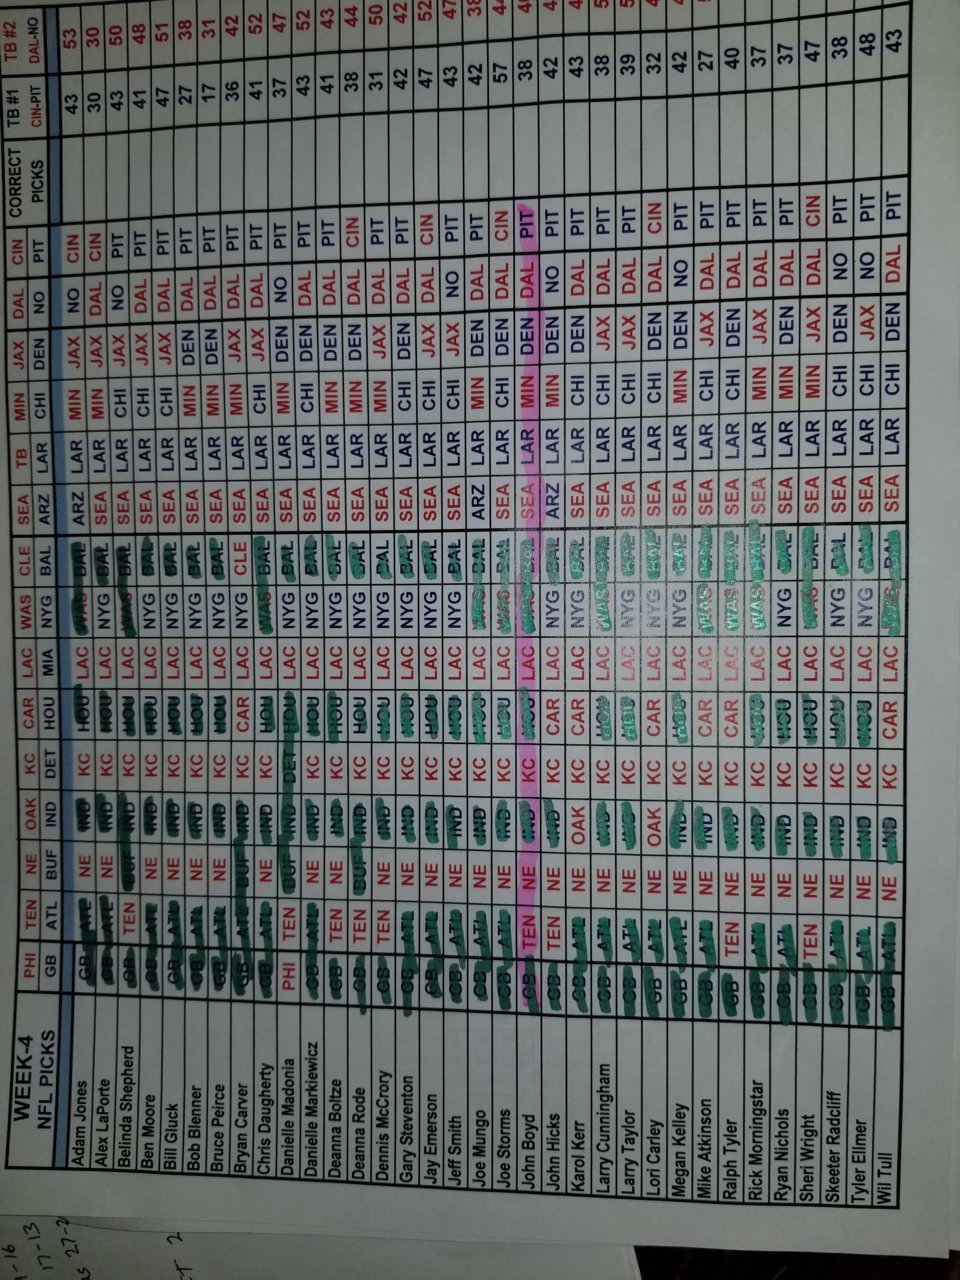 WEEK-4 PHI TEN NE OAK KC CAR LAC WAS CLE SEA TB MIN JAX DAL CIN CORRECT TB #1 TB #2
NFL PICKS GB ATL BUF IND DET HOU MIA NYG BAL ARZ LAR CHI DEN NO PIT PICKS CIN-PIT DAL-NO
Adam Jones GB ATL NE IND KC HOU LAC WAS BAL ARZ LAR MIN JAX NO CIN 43 53
Alex LaPorte GB ATL NE IND KC HOU LAC NYG BAL SEA LAR MIN JAX DAL CIN 30 30
Belinda Shepherd GB TEN BUF IND KC HOU LAC WAS BAL SEA LAR CHI JAX NO PIT 43 50
Ben Moore GB ATL NE IND KC HOU LAC NYG BAL SEA LAR CHI JAX DAL PIT 41 48
Bill Gluck GB ATL NE IND KC HOU LAC NYG BAL SEA LAR CHI JAX DAL PIT 47 51
Bob Blenner GB ATL NE IND KC HOU LAC NYG BAL SEA LAR MIN DEN DAL PIT 27 38
Bruce Peirce GB ATL NE IND KC HOU LAC NYG BAL SEA LAR MIN DEN DAL PIT 17 31
Bryan Carver GB ATL BUF IND KC CAR LAC NYG CLE SEA LAR MIN JAX DAL PIT 36 42
Chris Daugherty GB ATL NE IND KC HOU LAC WAS BAL SEA LAR CHI JAX DAL PIT 41 52
Danielle Madonia PHI TEN BUF IND DET HOU LAC NYG BAL SEA LAR MIN DEN NO PIT 37 47
Danielle Markiewicz GB ATL NE IND KC HOU LAC NYG BAL SEA LAR CHI DEN DAL PIT 43 52
Deanna Boltze GB TEN NE IND KC HOU LAC NYG BAL SEA LAR MIN DEN DAL PIT 41 43
Deanna Rode GB TEN BUF IND KC HOU LAC NYG BAL SEA LAR MIN DEN DAL CIN 38 44
Dennis McCrory GB TEN NE IND KC HOU LAC NYG BAL SEA LAR MIN JAX DAL PIT 31 50
Gary Steventon GB ATL NE IND KC HOU LAC NYG BAL SEA LAR CHI DEN DAL PIT 42 42
Jay Emerson GB ATL NE IND KC HOU LAC NYG BAL SEA LAR CHI JAX DAL CIN 47 52
Jeff Smith GB ATL NE IND KC HOU LAC NYG BAL SEA LAR CHI JAX NO PIT 43 47
Joe Mungo GB ATL NE IND KC HOU LAC WAS BAL ARZ LAR MIN DEN DAL PIT 42
Joe Storms GB ATL NE IND KC HOU LAC WAS BAL SEA LAR CHI DEN DAL CIN 57
John Boyd GB TEN NE IND KC HOU LAC WAS BAL SEA LAR MIN DEN DAL PIT 38
John Hicks GB TEN NE IND KC CAR LAC NYG BAL ARZ LAR MIN DEN NO PIT 42
Karol Kerr GB ATL NE OAK KC CAR LAC NYG BAL SEA LAR CHI DEN DAL PIT 43
Larry Cunningham GB ATL NE IND KC HOU LAC WAS BAL SEA LAR CHI JAX DAL PIT 38
Larry Taylor GB ATL NE IND KC HOU LAC NYG BAL SEA LAR CHI JAX DAL PIT 39
Lori Carley GB ATL NE OAK KC CAR LAC NYG BAL SEA LAR CHI DEN DAL CIN 32
Megan Kelley GB ATL NE IND KC HOU LAC NYG BAL SEA LAR MIN DEN NO PIT 42
Mike Atkinson GB ATL NE IND KC CAR LAC WAS BAL SEA LAR CHI JAX DAL PIT 27
Ralph Tyler GB TEN NE IND KC CAR LAC WAS BAL SEA LAR CHI DEN DAL PIT 40
Rick Morningstar GB ATL NE IND KC HOU LAC WAS BAL SEA LAR MIN JAX DAL PIT 37
Ryan Nichols GB ATL NE IND KC HOU LAC NYG BAL SEA LAR MIN DEN DAL PIT 37
Sheri Wright GB TEN NE IND KC HOU LAC WAS BAL SEA LAR MIN JAX DAL CIN 47
Skeeter Radcliff GB ATL NE IND KC HOU LAC NYG BAL SEA LAR CHI DEN NO PIT 38
Tyler Ellmer GB ATL NE IND KC HOU LAC NYG BAL SEA LAR CHI JAX NO PIT 48
Wil Tull GB ATL NE IND KC CAR LAC WAS BAL SEA LAR CHI DEN DAL PIT 43
17-13